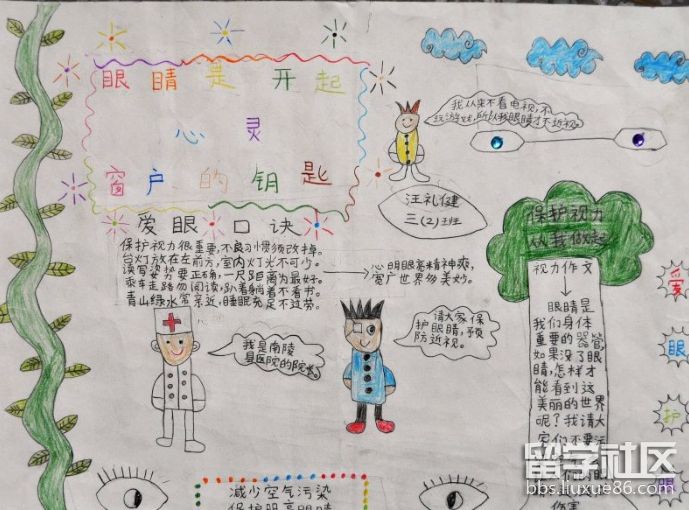 眼睛是开起
心灵
窗户的钥匙
我从来不看电视,不
玩游戏,所以我眼睛才不近视。
汪礼健
三(2)班
爱眼口诀
保护视力很重要,不良习惯须改掉。
台灯放在左前方,室内灯光不可少。
读写姿势要正确,一尺距离为最好。
乘车走路勿阅读,趴着躺着不看书。
青山绿水常亲近,睡眠充足不过劳。
心明眼亮精神爽,
宽广世界多美妙。
我是南陵
县医院的院长。
请大家保
护眼睛,预
防近视。
保护视力
从我做起
视力作文
眼睛是
我们身体
重要的器官,
如果没了眼
睛,怎样才
能看到这
美丽的世界
呢?我请大
它们不要
伤害
爱
眼
护
眼
减少空气污染
保护明亮眼睛
留学社区
bbs.liuxue86.com